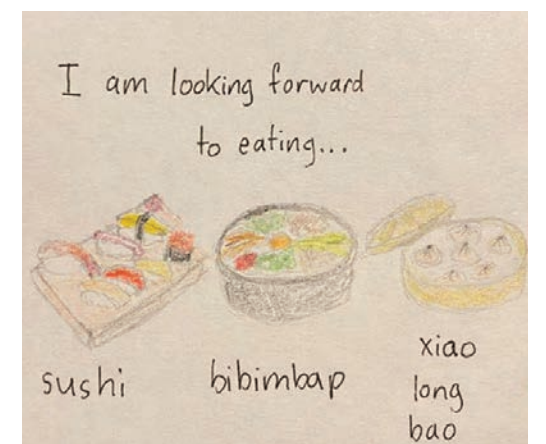 I am looking forward
to eating...
sushi
bibimbap
xiao
long
bao